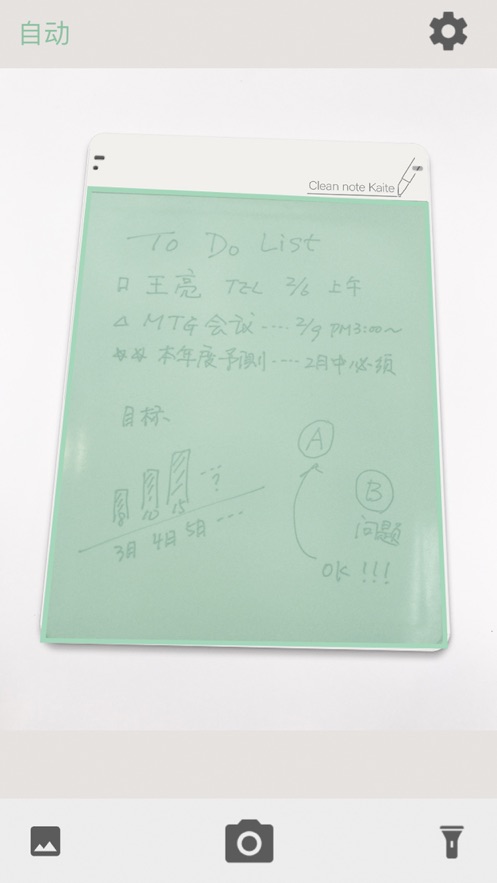 自动
Clean note Kaite
To Do List
□ 王亮 TEL 2/6 上午
△ MTG 会议···· 2/9 PM3:00~
本年度予測···· 2月中必须
目标、
···?
8 10 15
3月 4月 5月 ···
A
B
问题
OK !!!